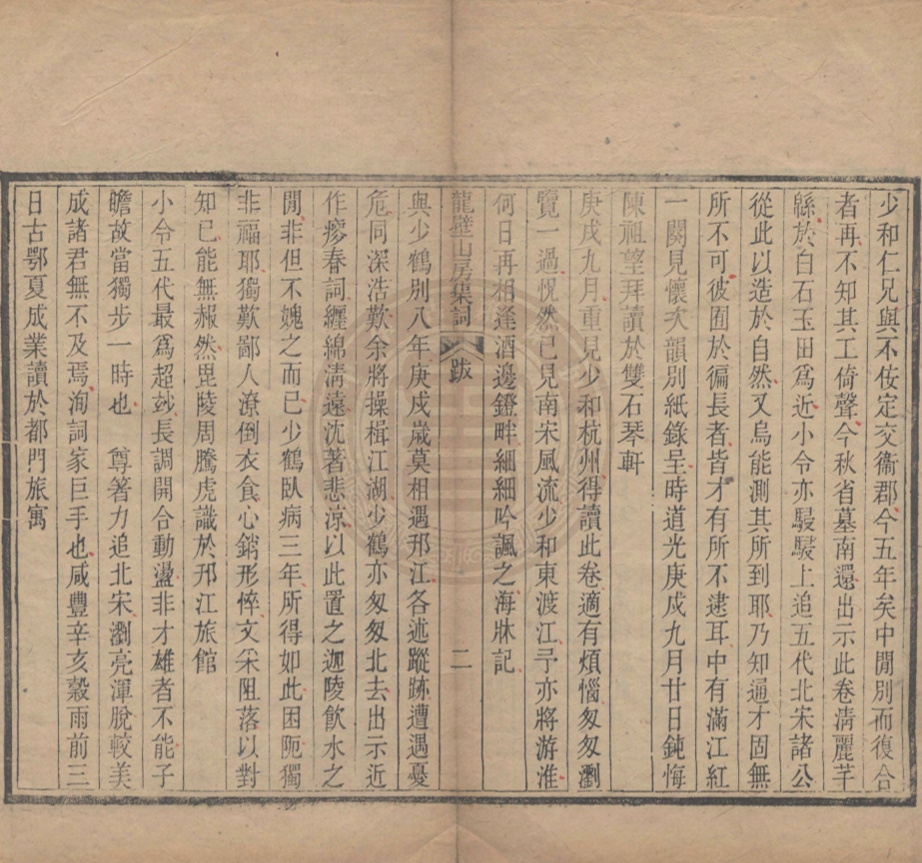 少和仁兄與不侒定交衞郡今五年矣中閒別而復合
者再不知其工倚聲今秋省墓南還出示此卷淸麗芊
緜於白石玉田爲近小令亦駸駸上追五代北宋諸公
從此以造於自然又烏能測其所到耶乃知通才固無
所不可彼囿於徧長者皆才有所不逮耳中有滿江紅
一闋見懷次韻別紙錄呈時道光庚戌九月廿日鈍悔
陳祖望拜讀於雙石琴軒
庚戌九月重見少和杭州得讀此卷適有煩惱匆匆瀏
覽一過怳然已見南宋風流少和東渡江予亦將游淮
何日再相逢酒邊鐙畔細細吟諷之海牀記
龍壁山房集詞 跋 二
與少鶴別八年庚戌歲莫相遇邗江各述蹤跡遭遇憂
危同深浩歎余將操楫江湖少鶴亦匆匆北去出示近
作瘳春詞纏綿淸遠沈著悲涼以此置之迦陵飮水之
閒非但不媿之而已少鶴臥病三年所得如此困阨獨
非福耶獨歎鄙人潦倒衣食心銷形悴文采阻落以對
知已能無赧然毘陵周騰虎識於邗江旅館
小令五代最爲超妙長調開合動盪非才雄者不能子
瞻故當獨步一時也 尊箸力追北宋瀏亮渾脫較美
成諸君無不及焉洵詞家巨手也咸豐辛亥穀雨前三
日古鄂夏成業讀於都門旅寓